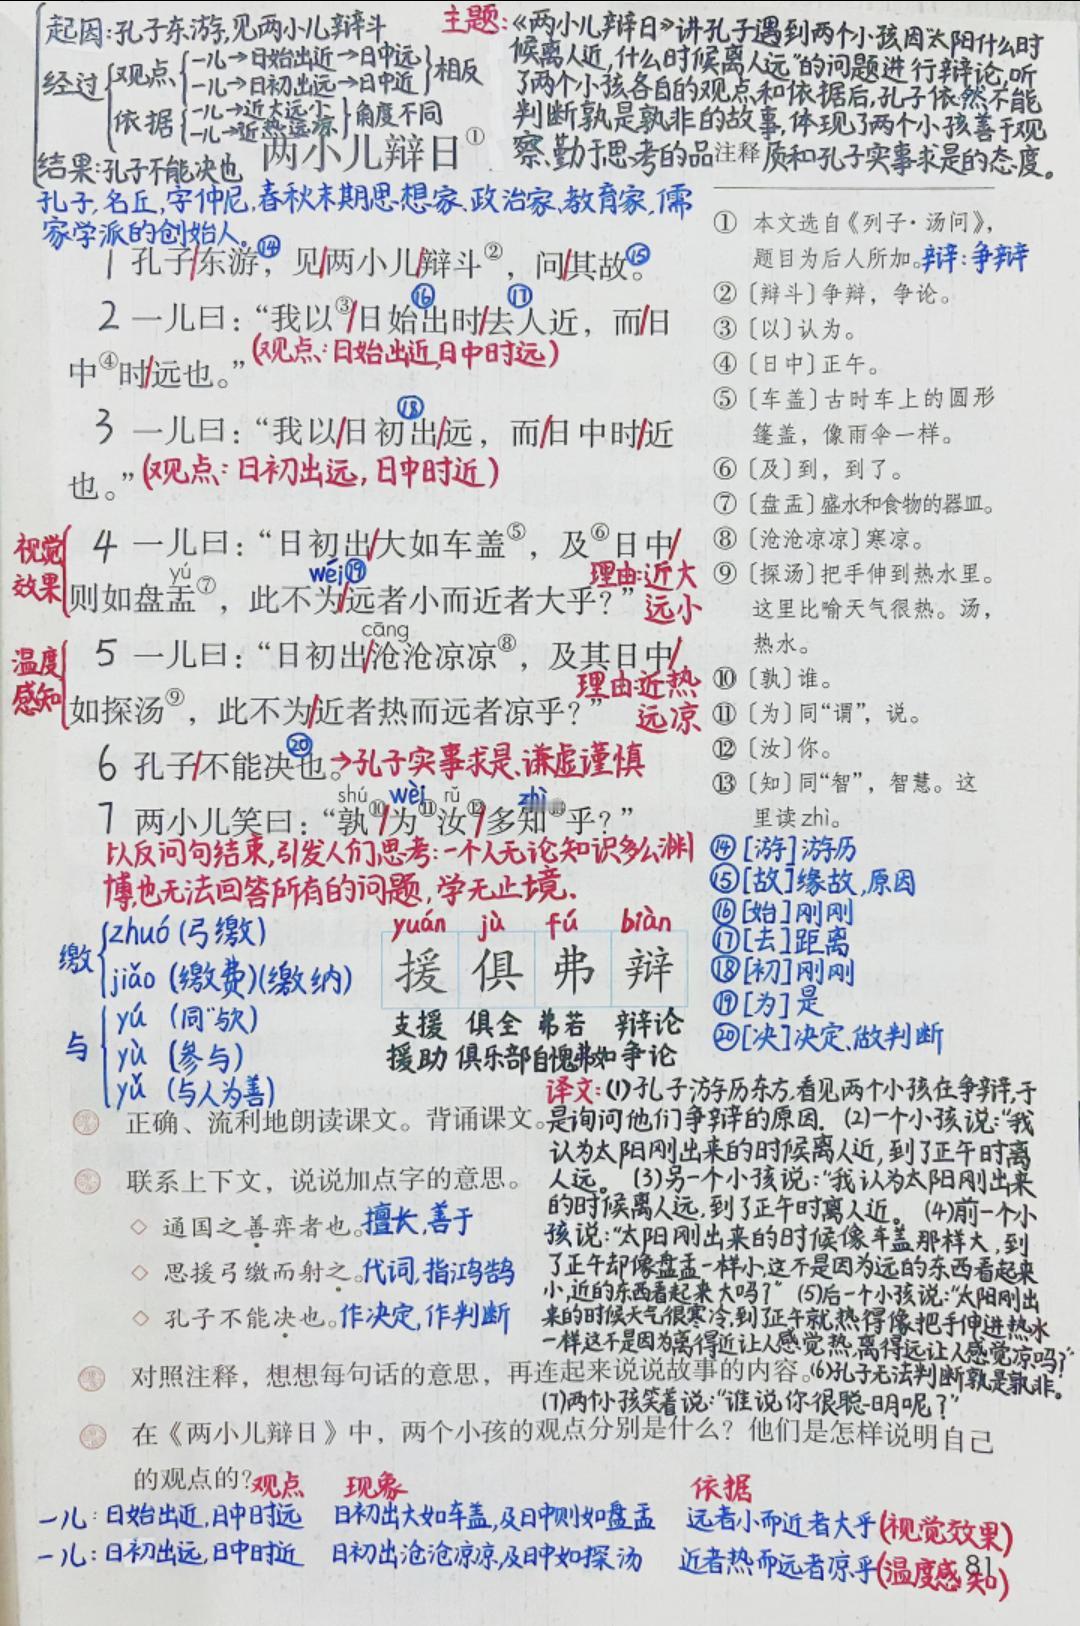 起因:孔子东游,见两小儿辩斗
经过 观点 一儿→日始出近→日中远
一儿→日初出远→日中近 相反
依据 一儿→近大远小
一儿→近热远凉 角度不同
结果:孔子不能决也
主题:《两小儿辩日》讲孔子遇到两个小孩因"太阳什么时
候离人近,什么时候离人远"的问题进行辩论,听
了两个小孩各自的观点和依据后,孔子依然不能
判断孰是孰非的故事,体现了两个小孩善于观
察、勤于思考的品质和孔子实事求是的态度。
两小儿辩日①
孔子,名丘,字仲尼,春秋末期思想家、政治家、教育家,儒
家学派的创始人。
1 孔子/东游⑭,见/两小儿/辩斗②,问/其故⑮。
2 一儿曰:“我以③/日始⑯出时/去⑰人近,而/日
(观点:日始出近,日中时远)
中④时/远也。”
3 一儿曰:“我以/日初⑱出/远,而/日中时/近
也。”(观点:日初出远,日中时近)
视觉
效果
4 一儿曰:“日初出/大如车盖⑤,及⑥日中/
yú wéi⑲ 理由:近大
则如盘盂⑦,此不为/远者小而近者大乎?” 远小
cāng
温度
感知
5 一儿曰:“日初出/沧沧凉凉⑧,及其日中/
理由:近热
如探汤⑨,此不为/近者热而远者凉乎?” 远凉
6 孔子/不能决⑳也。→孔子实事求是、谦虚谨慎
shú wèi rǔ zhì
7 两小儿笑曰:“孰⑩/为⑪汝⑫/多知⑬乎?”
以反问句结束,引发人们思考:一个人无论知识多么渊
博,也无法回答所有的问题,学无止境.
注释
① 本文选自《列子·汤问》,
题目为后人所加。辩:争辩
② 〔辩斗〕争辩,争论。
③ 〔以〕认为。
④ 〔日中〕正午。
⑤ 〔车盖〕古时车上的圆形
篷盖,像雨伞一样。
⑥ 〔及〕到,到了。
⑦ 〔盘盂〕盛水和食物的器皿。
⑧ 〔沧沧凉凉〕寒凉。
⑨ 〔探汤〕把手伸到热水里。
这里比喻天气很热。汤,
热水。
⑩ 〔孰〕谁。
⑪ 〔为〕同“谓”,说。
⑫ 〔汝〕你。
⑬ 〔知〕同“智”,智慧。这
里读zhì。
⑭[游]游历
⑮[故]缘故,原因
⑯[始]刚刚
⑰[去]距离
⑱[初]刚刚
⑲[为]是
⑳[决]决定、做判断
缴 zhuó(弓缴)
jiǎo(缴费)(缴纳)
与 yú (同"欤)
yù (参与)
yǔ (与人为善)
yuán jù fú biàn
援 俱 弗 辩
支援 俱全 弗若 辩论
援助 俱乐部 自愧弗如 争论
正确、流利地朗读课文。背诵课文。
联系上下文,说说加点字的意思。
◇ 通国之善弈者也。擅长,善于
◇ 思援弓缴而射之。代词,指鸿鹄
◇ 孔子不能决也。作决定,作判断
译文:(1)孔子游历东方,看见两个小孩在争辩,于
是询问他们争辩的原因. (2)一个小孩说:"我
认为太阳刚出来的时候离人近,到了正午时离
人远。 (3)另一个小孩说:"我认为太阳刚出来
的时候离人远,到了正午时离人近。 (4)前一个小
孩说:"太阳刚出来的时候像车盖那样大,到
了正午却像盘盂一样小,这不是因为远的东西看起来
小,近的东西看起来大吗?" (5)后一个小孩说:"太阳刚出
来的时候天气很寒冷,到了正午就热得像把手伸进热水
一样这不是因为离得近让人感觉热,离得远让人感觉凉吗?"
(6)孔子无法判断孰是孰非。
(7)两个小孩笑着说:"谁说你很聪明呢?"
对照注释,想想每句话的意思,再连起来说说故事的内容。
在《两小儿辩日》中,两个小孩的观点分别是什么?他们是怎样说明自己
的观点的?
观点 现象 依据
一儿:日始出近,日中时远 日初出大如车盖,及日中则如盘盂 远者小而近者大乎(视觉效果)
一儿:日初出远,日中时近 日初出沧沧凉凉,及日中如探汤 近者热而远者凉乎(温度感知)
81